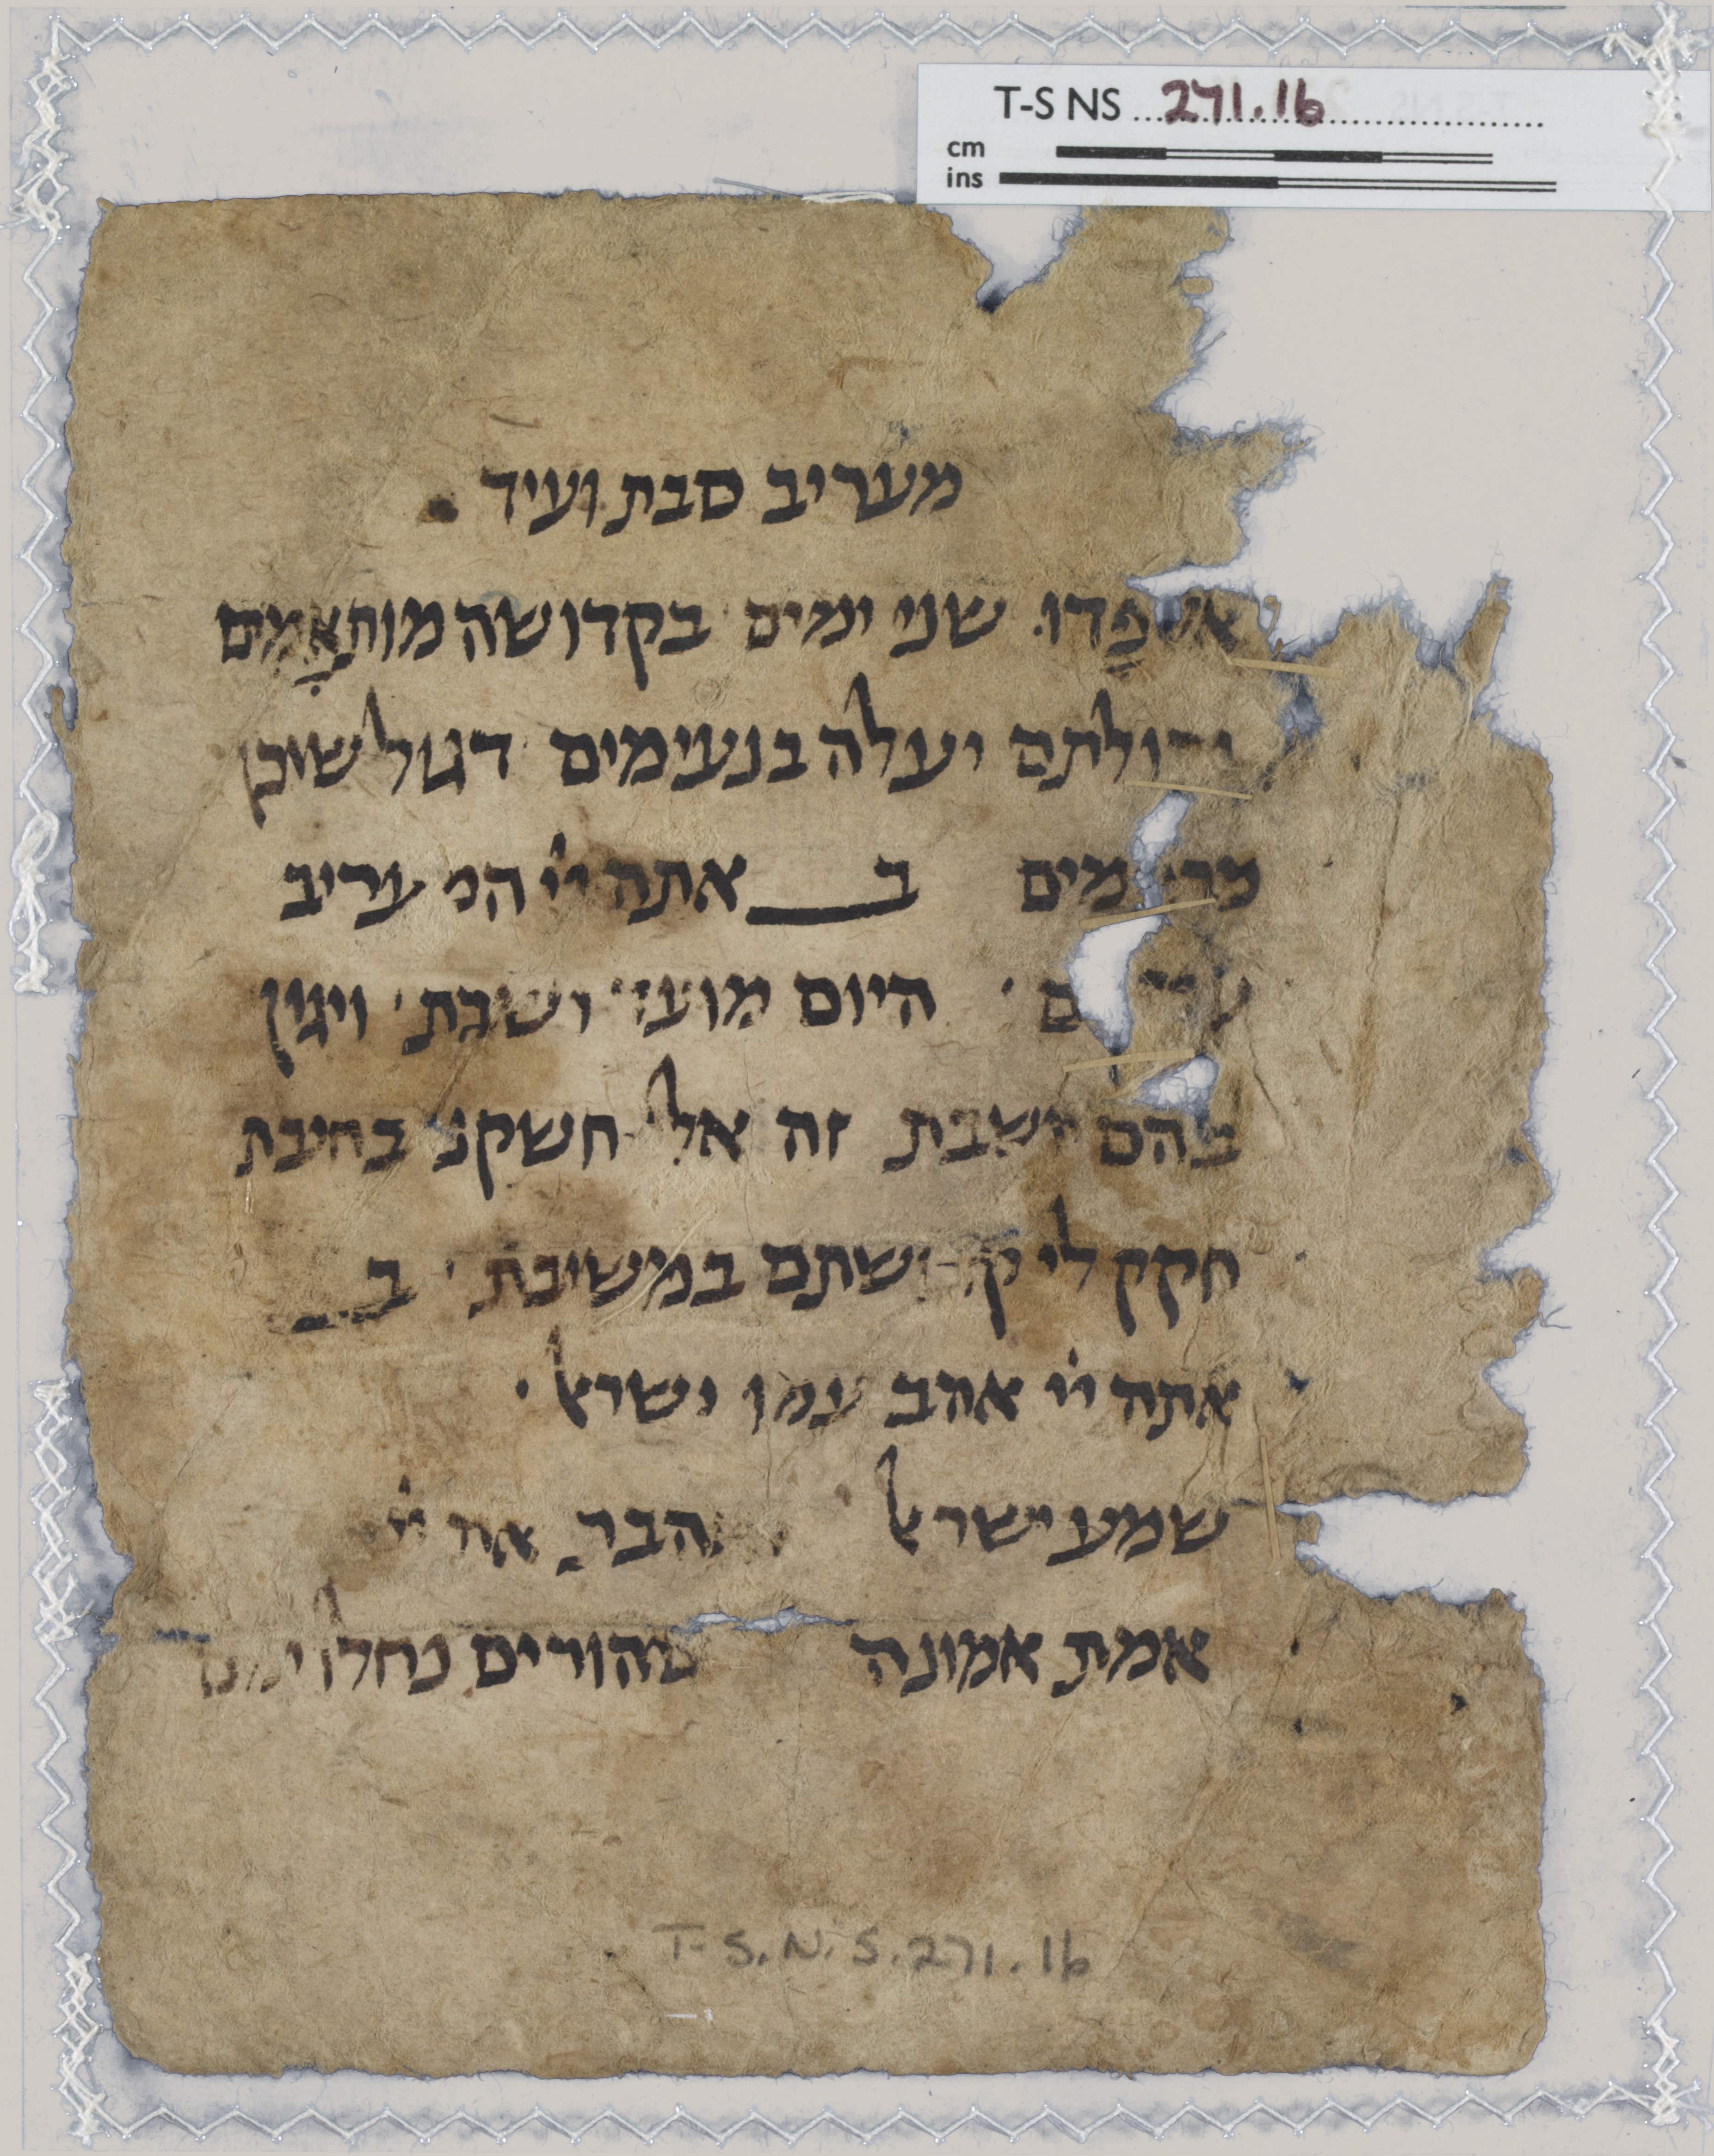 T-S NS 271.16
cm
ins
מעריב סבת ועיד
שני ימים בקדושה מותאמים
יעלה בנעימים דגול שוכן
ב אתה ייי המעריב
היום מועד ושבת ויגון
בהם ושבת זה אלי חשקנו בחיבת
חקק לי קדושתם במשיבת ב
אתה ייי אהב עמו ישראל
שמע ישראל
אמת אמונה טהורים נחלו
T-S.N.S.271.16